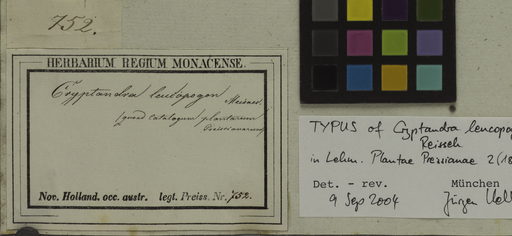 752.
HERBARIUM REGIUM MONACENSE.
Cryptandra leucopogon Meisner.
(quod catalogum plantarum
Preissianarum)
Nov. Holland. occ. austr. legt. Preiss. Nr. 752.
TYPUS of Cryptandra leucopog
Reissek
in Lehm. Plantae Preissianae 2(18
Det. – rev. München
9 Sep 2004 Jürgen